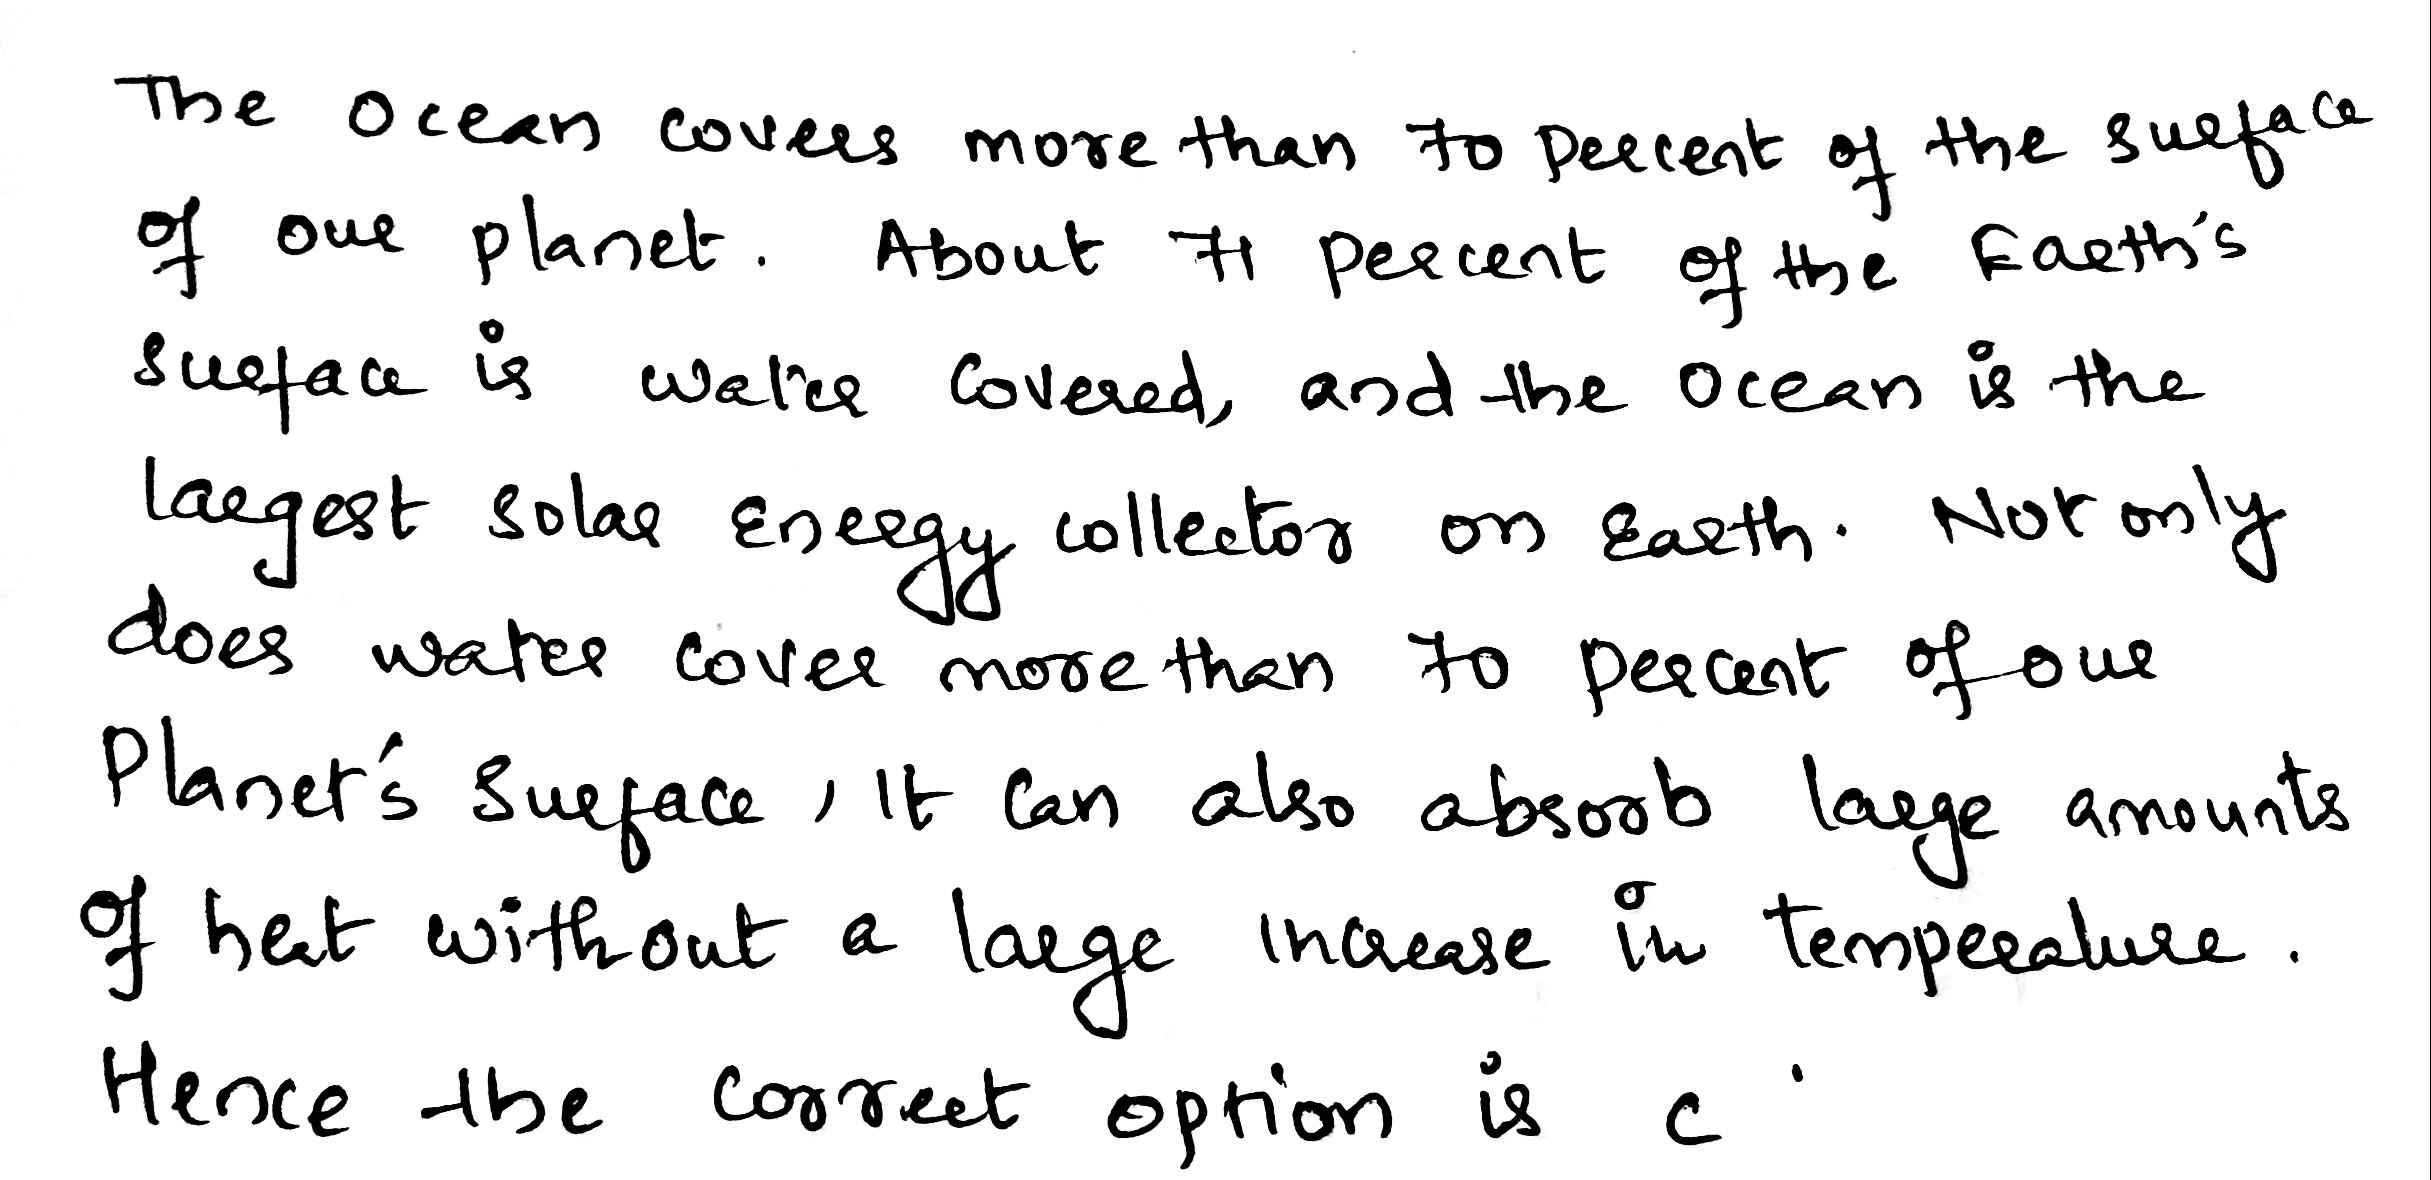 The Ocean covers more than 70 percent of the surface
of our planet. About 71 percent of the Earth's
surface is water covered, and the ocean is the
largest solar Energy collector on Earth. Not only
does water cover more than 70 percent of our
Planet's surface, It can also absorb large amounts
of heat without a large increase in temperature.
Hence the correct option is c.